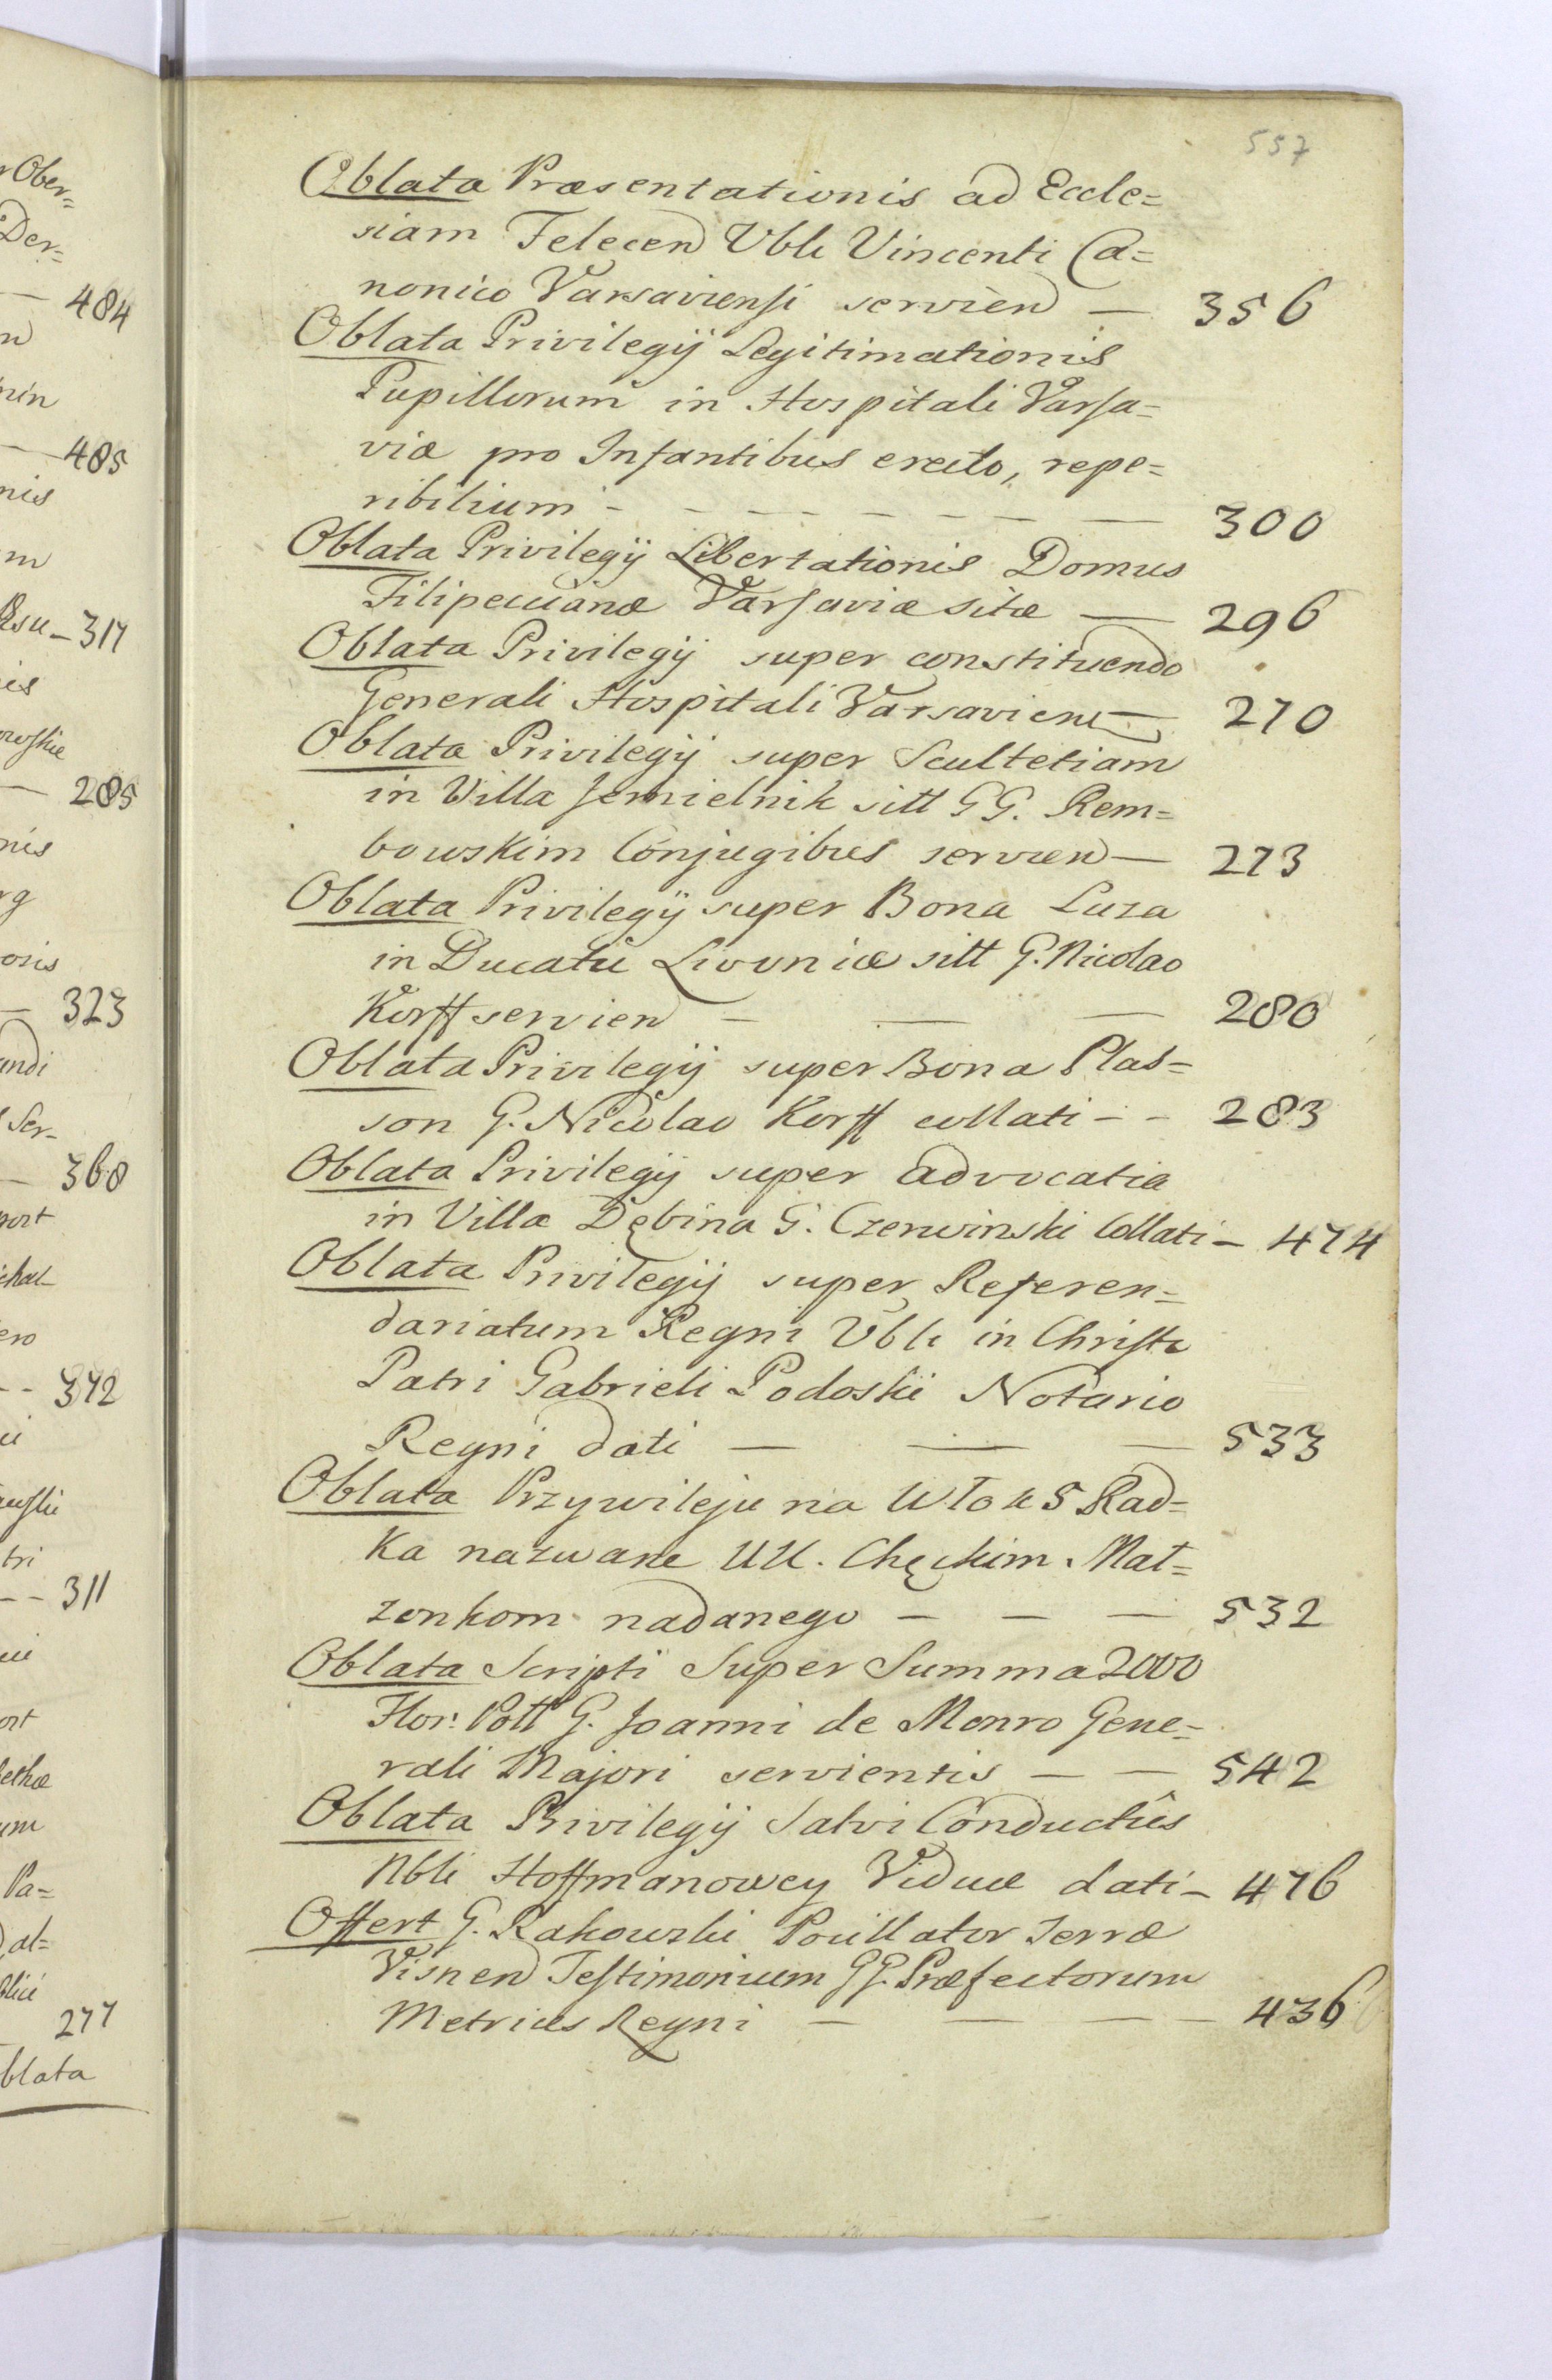 557
Oblata Præsentationis ad Eccle=
siam Telecen Vbli Vincenti Ca=
nonico Varsaviensi servien — 356
Oblata Privilegij Legitimationis
Pupillorum in Hospitali Varsa=
viæ pro Infantibus erecto, repe=
ribilium - - - - - - - 300
Oblata Privilegij Libertationis Domus
Filipecciane Varsaviæ sitæ — 296
Oblata Privilegij super constituendo
Generali Hospitali Varsavien — 270
Oblata Privilegij super Scultetiam
in Villa Jemielnik sitt GG. Rem=
bowskim Conjugibus servien — 273
Oblata Privilegij super Bona Luza
in Ducatu Livoniæ sitt G. Nicolao
Korff servien — — — 280
Oblata Privilegij super Bona Plas=
son G. Nicolao Korff collati - - 283
Oblata Privilegij super advocatia
in Villa Dębina G. Czerwinski Collati — 474
Oblata Privilegij super Referen=
dariatum Regni Vbli in Christo
Patri Gabrieli Podoski Notario
Regni dati — — — 533
Oblata Przywileju na Włok 5 Rad=
ka nazwane UU. Chęckim Mał=
zonkom nadanego — — — 532
Oblata Scripti Super Summa 2000
Flor: Poll G. Joanni de Monro Gene=
rali Majori servientis — — 542
Oblata Privilegij Salvi Conductûs
Nbli Hoffmanowey Viduæ dati — 476
Offert G. Rakowski Pocillator Terræ
Visnen Testimonium GG. Præfectorum
Metrices Regni — — — — 436